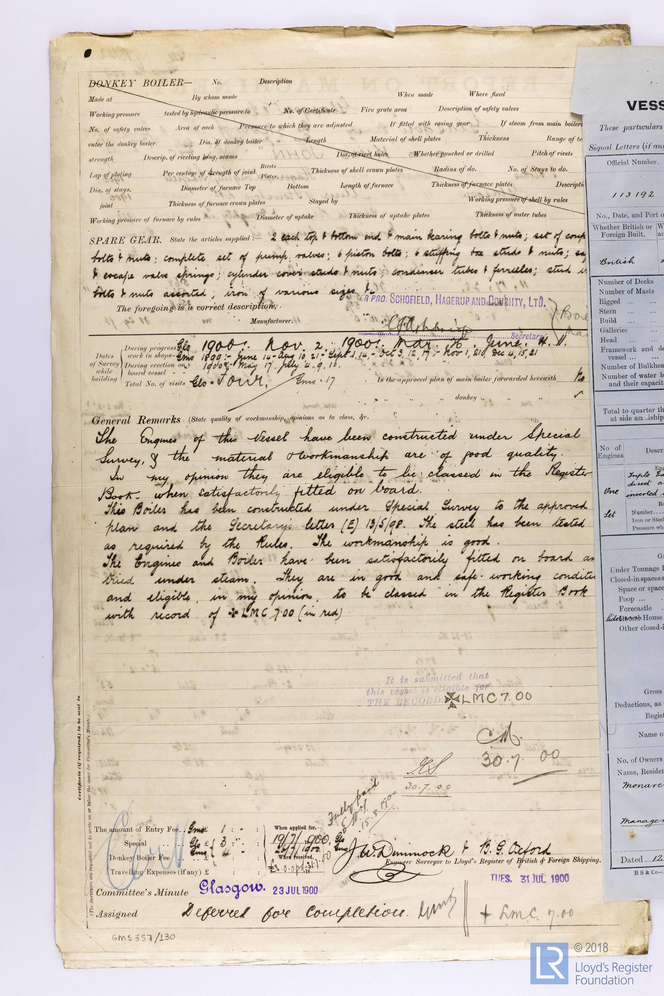 DONKEY BOILER— No. Description
Made at By whom made When made Where fixed
Working pressure tested by hydraulic pressure to No. of Certificate Fire grate area Description of safety valves
No. of safety valves Area of each Pressure to which they are adjusted If fitted with easing gear If steam from main boilers
enter the donkey boiler Dia. of donkey boiler Length Material of shell plates Thickness Range of te
strength Descrip. of riveting long. seams Dia. of rivet holes Whether punched or drilled Pitch of rivets
Lap of plating Per centage of strength of joint Rivets Plates Thickness of shell crown plates Radius of do. No. of Stays to do.
Dia. of stays. Diameter of furnace Top Bottom Length of furnace Thickness of furnace plates Descripti
joint Thickness of furnace crown plates Stayed by Working pressure of shell by rules
Working pressure of furnace by rules Diameter of uptake Thickness of uptake plates Thickness of water tubes
SPARE GEAR. State the articles supplied:— 2 each top & bottom end & main bearing bolts & nuts; set of coup
bolts & nuts; complete set of pump valves; 6 piston bolts; 6 stuffing box studs & nuts;
& escape valve springs; cylinder cover studs & nuts; condenser tubes & ferrules; stud
bolts & nuts assorted; iron of various sizes &c
The foregoing is a correct description,
PRO. SCHOFIELD, HAGERUP AND DOUGHTY, LTD.
Manufacturer. Secretary
Dates of Survey while building
During progress of work in shops— Glo 1900: Nov. 2. 1900: Mar. 26. June.
Gms 1899:- June 14 - Aug 10, 21 - Sept 1, 14 - Oct 3, 12, 17 - Nov 1, 21, Dec 4, 15, 21
During erection on board vessel— 1900: May 17, July 4, 9, 13
Total No. of visits Glo Four. Gms - 17 Is the approved plan of main boiler forwarded herewith
" " " donkey " " "
General Remarks (State quality of workmanship, opinions as to class, &c.
The Engines of this Vessel have been constructed under Special
Survey, & the material & workmanship are of good quality.
In my opinion they are eligible to be classed in the Register
Book when satisfactorily fitted on board.
This Boiler has been constructed under Special Survey to the approved
plan and the Secretary's letter (E) 13/5/98. The steel has been tested
as required by the Rules. The workmanship is good.
The Engines and Boiler have been satisfactorily fitted on board an
tried under steam. They are in good and safe working conditi
and eligible, in my opinion, to be classed in the Register Book
with record of ✠ LMC 7.00 (in red)
It is submitted that
this vessel is eligible for
THE RECORD ✠ LMC 7.00
30.7.00
30.7.00
Certificate (if required) to be sent to
The amount of Entry Fee.. Gms 1 : : When applied for,
Special Glo 3 : : 19/7/1900
Gms 4
Donkey Boiler Fee £ : : When received,
Travelling Expenses (if any) £ : :
J. W. Dimmock & B. G. Oxford
Engineer Surveyor to Lloyd's Register of British & Foreign Shipping.
Committee's Minute Glasgow. 23 JUL 1900 TUES. 31 JUL 1900
Assigned Deferred for completion. + LMC. 7.00
GMS357/130
VESS
These particulars
Signal Letters (if an
Official Number.
113192
No., Date, and Port o
Whether British or Foreign Built.
British
Number of Decks
Number of Masts
Rigged ...
Stern ...
Build ...
Galleries
Head ...
Framework and de
vessel ...
Number of Bulkhea
Number of water b
and their capaci
Total to quarter th
at side amidship
No. of Engines. Descr
One Triple
direct a
Set inverted
Number...
Iron or Steel
Pressure wh
Under Tonnage
Closed-in spaces
Space or space
Poop ...
Forecastle
House
Other closed-i
Gross
Deductions, as
Regist
Name of
No. of Owners
Name, Residen
Monarc
Manager
Dated 12
LR © 2018
Lloyd's Register
Foundation